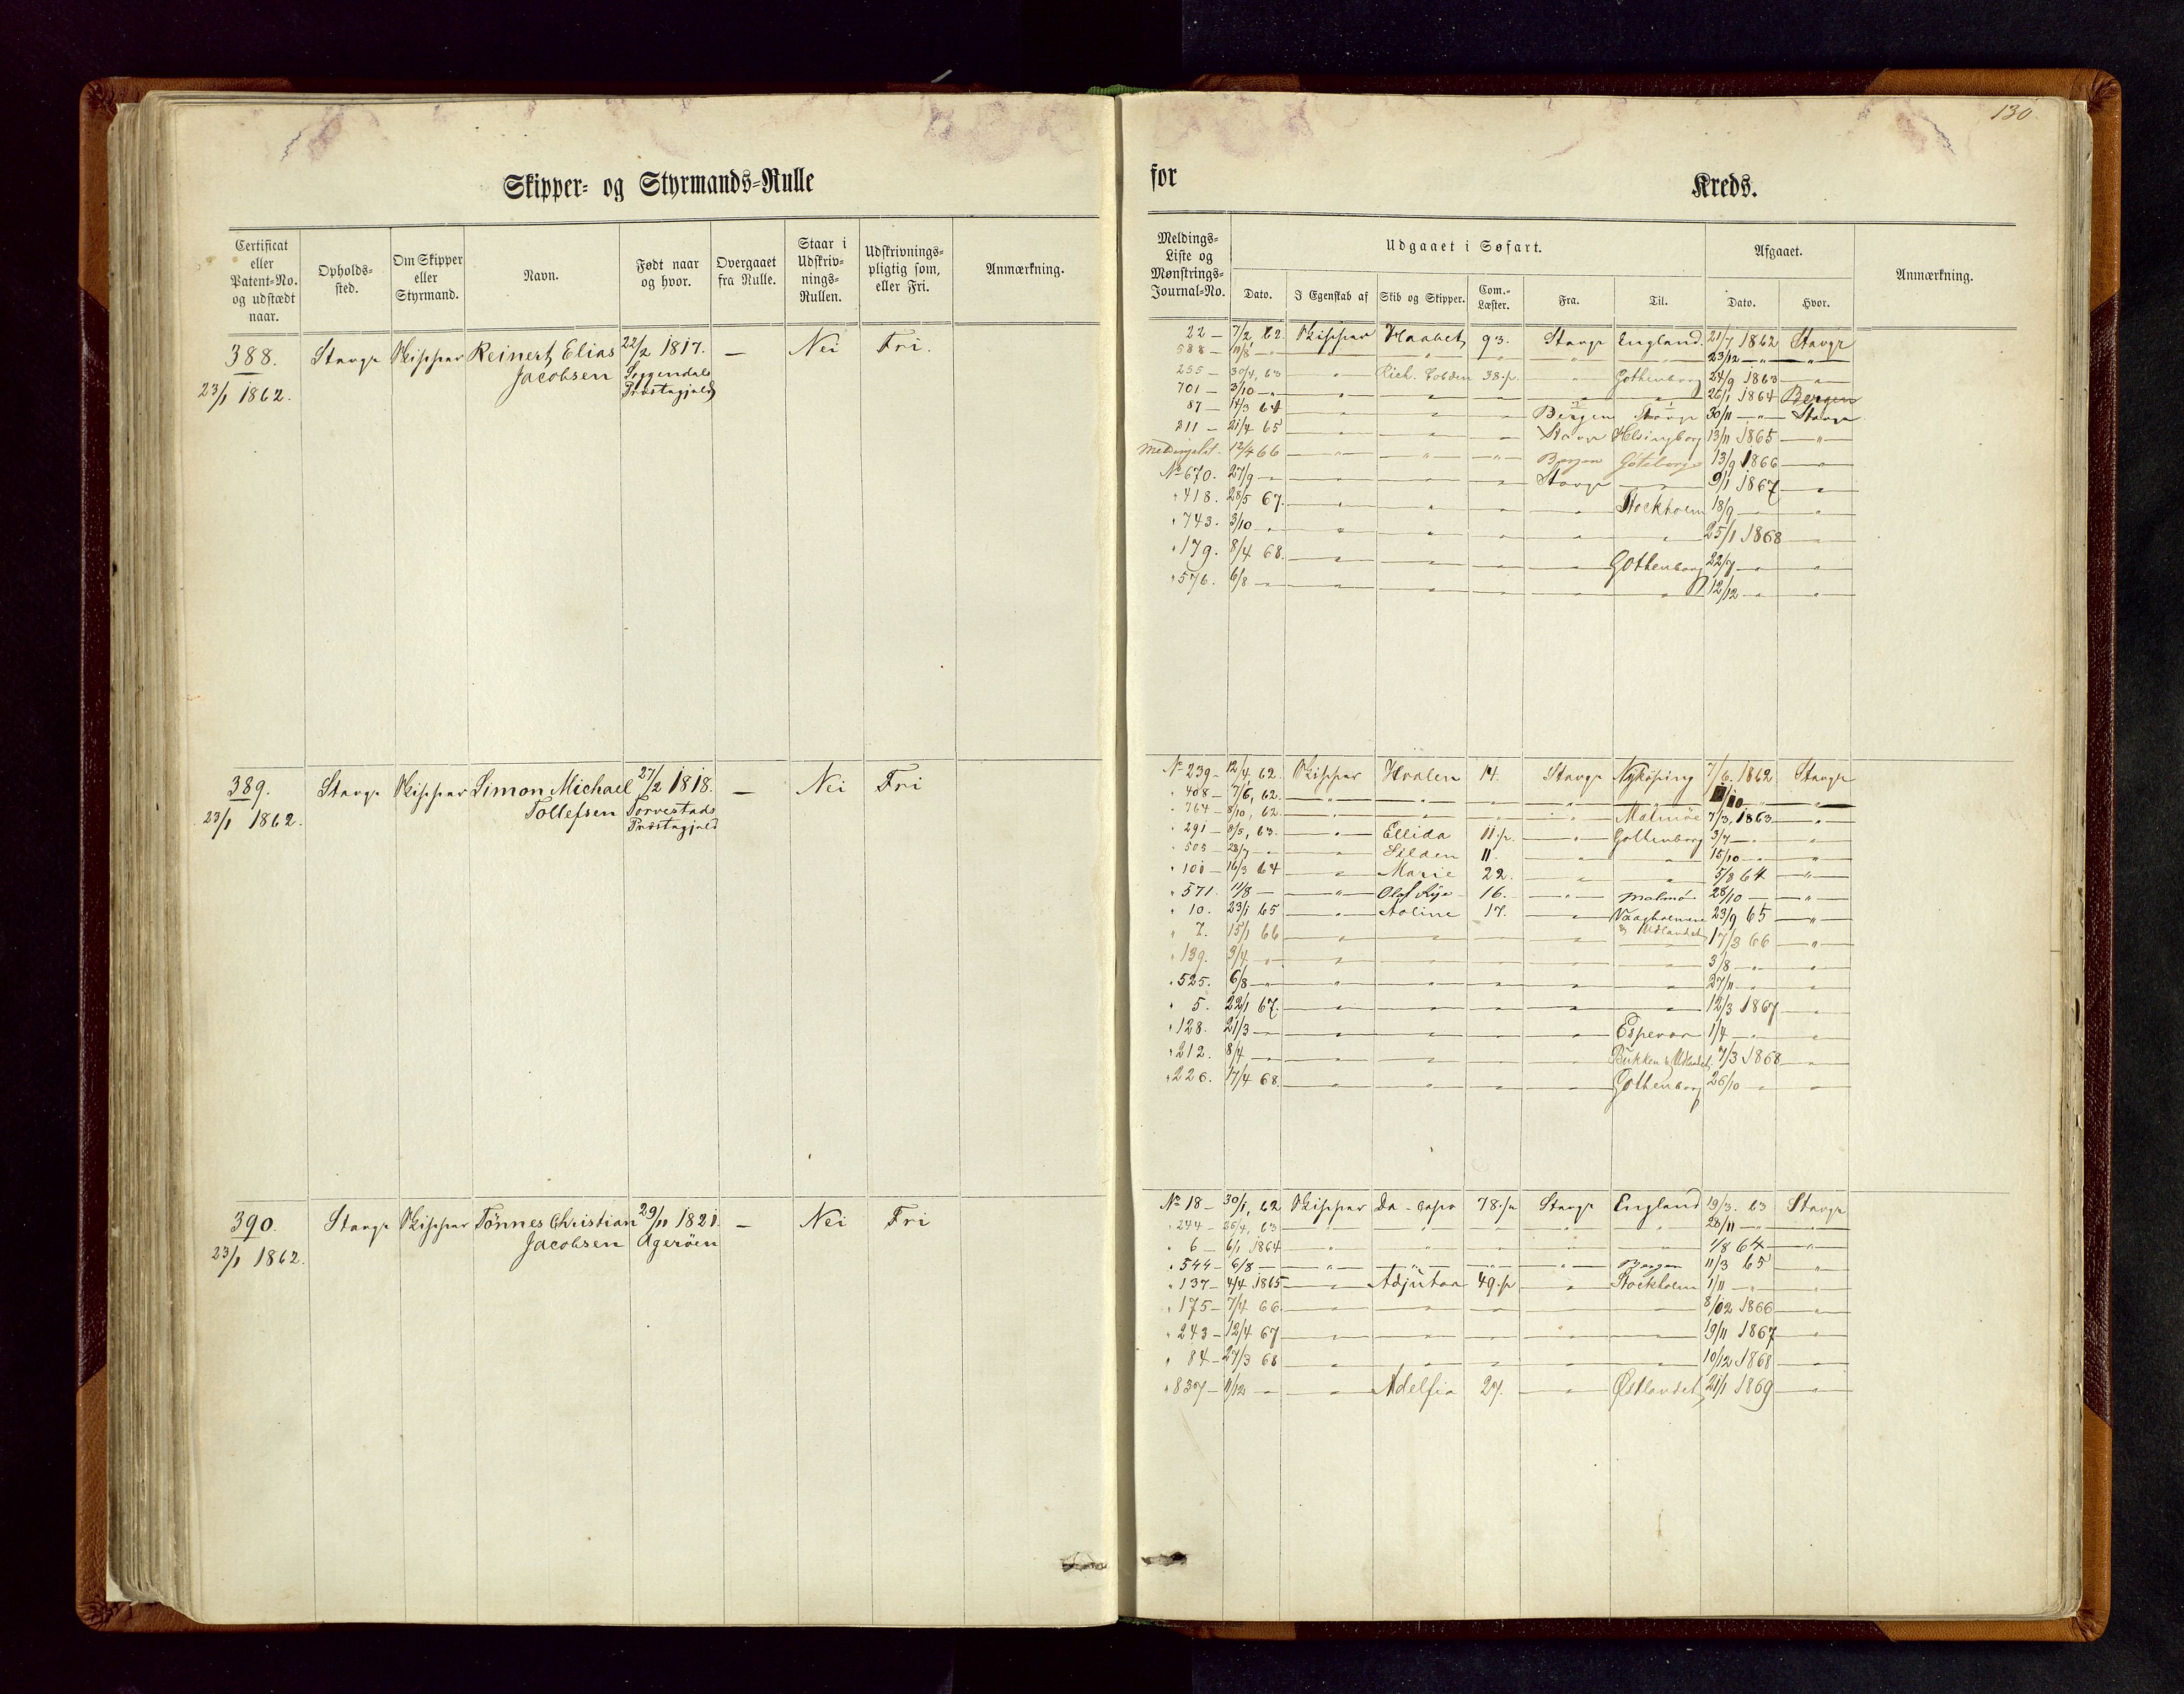 130
Skipper- og Styrmands-Rulle for Kreds.
Certificat eller Patent-No. og udstædt naar. Opholds-sted. Om Skipper eller Styrmand. Navn. Født naar og hvor. Overgaaet fra Rulle. Staar i Udskriv-nings-Rullen. Udskrivnings-pligtig som, eller Fri. Anmærkning.
Meldings-Liste og Mønstrings-Journal-No. Udgaaet i Søfart. Afgaaet. Anmærkning.
Dato. I Egenskab af Skib og Skipper. Com.-Læster. Fra. Til. Dato. Hvor.
388. Stavgr Skipper Reinert Elias 22/2 1817. — Nei Fri.
23/1 1862. Jacobsen Soggendals
Præstegjeld
22 — 7/2, 62. Skipper Haabet 93. Stavgr England. 21/7 1862 Stavgr
588 — 11/8 — " — " — " — " — " — 23/12 — " — " —
255 — 30/4, 63 — " — Rich. Cobden 38.p. — " — Gothenborg 24/9 1863 — " —
701 — 3/10 — " — " — " — " — " — " 26/1 1864 Bergen
87 — 14/3 64 — " — " — " Bergen Stavgr 30/11 — " — Stavgr
211 — 21/4 65 — " — " — " Stavgr Helsingborg 13/11 1865 — " —
Meldingslist. 12/4 66 — " — " — " — Bergen Göteborg 13/9 1866 — " —
No 670. 27/9 — " — " — " — Stavgr — " — 9/1 1867 — " —
" 418. 28/5 67. — " — " — " — " — Stockholm 18/9 — " — " —
" 743. 3/10 — " — " — " — " — " — 25/1 1868 — " —
" 179. 8/4 68. — " — " — " — " — Gothenborg 22/7 — " — " —
" 576. 6/8 — " — " — " — " — " — 12/12 — " — " —
389. Stavgr Skipper Simon Michael 27/2 1818. — Nei Fri
23/1 1862. Tollefsen Torvestads
Præstegjeld
No 239 — 12/4, 62. Skipper Hvalen 14. Stavgr Nyköping 7/6. 1862 Stavgr
" 408 — 7/6, 62. — " — " — " — " — " — /10 — " — " —
" 764 — 8/10, 62. — " — " — " — " — Malmöe 7/3, 1863 — " —
" 291 — 8/5, 63. — " — Ellida 11.p. — " — Gothenborg 3/7 — " — " —
" 505 — 28/7 — " — " — Silden 11. — " — " — 15/10 — " — " —
" 101 — 16/3 64 — " — Marie 22. — " — " — 5/8 64 — " —
" 571. 11/8 — — " — Olaf Rye 16. — " — Malmö 28/10 — — " —
" 10. 23/1 65 — " — Aoline 17. — " — Vaagholmene 23/9 65 — " —
& Udlandet
" 7. 15/1 66 — " — " — " — " — 17/3 66 — " —
" 139. 3/4 — " — " — " — " — " — 3/8 — " — " —
" 525. 6/8 — " — " — " — " — " — 27/11 — " — " —
" 5. 22/1 67. — " — " — " — " — " — 12/3 1867 — " —
" 128. 21/3 — " — " — " — " — Espevær 1/4 — " — " —
" 212. 8/4 — " — " — " — " — Bukken & Udlandet 7/3 1868 — " —
" 226. 17/4 68. — " — " — " — " — Gothenborg 26/10 — " — " —
390. Stavgr Skipper Tönnes Christian 29/11 1821. — Nei Fri
23/1 1862. Jacobsen Agerøen
No 18 — 30/1, 62 Skipper Da-capo 78.p. Stavgr England 19/3. 63 Stavgr
" 244 — 25/4, 63 — " — " — " — " — " — 28/11 — " — " —
" 6 — 6/1 1864 — " — " — " — " — " — 1/8 64 — " —
" 544 — 6/8 — — " — " — " — " — Bergen 11/3 65 — " —
" 137 — 4/4 1865 — " — Adjutor 49.p — " — Stockholm 1/11 — " — " —
" 175 — 7/4 66. — " — " — " — " — " — 8/12 1866 — " —
" 243 — 12/4 67 — " — " — " — " — " — 19/11 1867 — " —
" 84 — 27/3 68 — " — " — " — " — " — 10/12 1868 — " —
" 837 — 11/12 — " — " — Adelfia 27. — " — Østlandet 21/1 1869 — " —